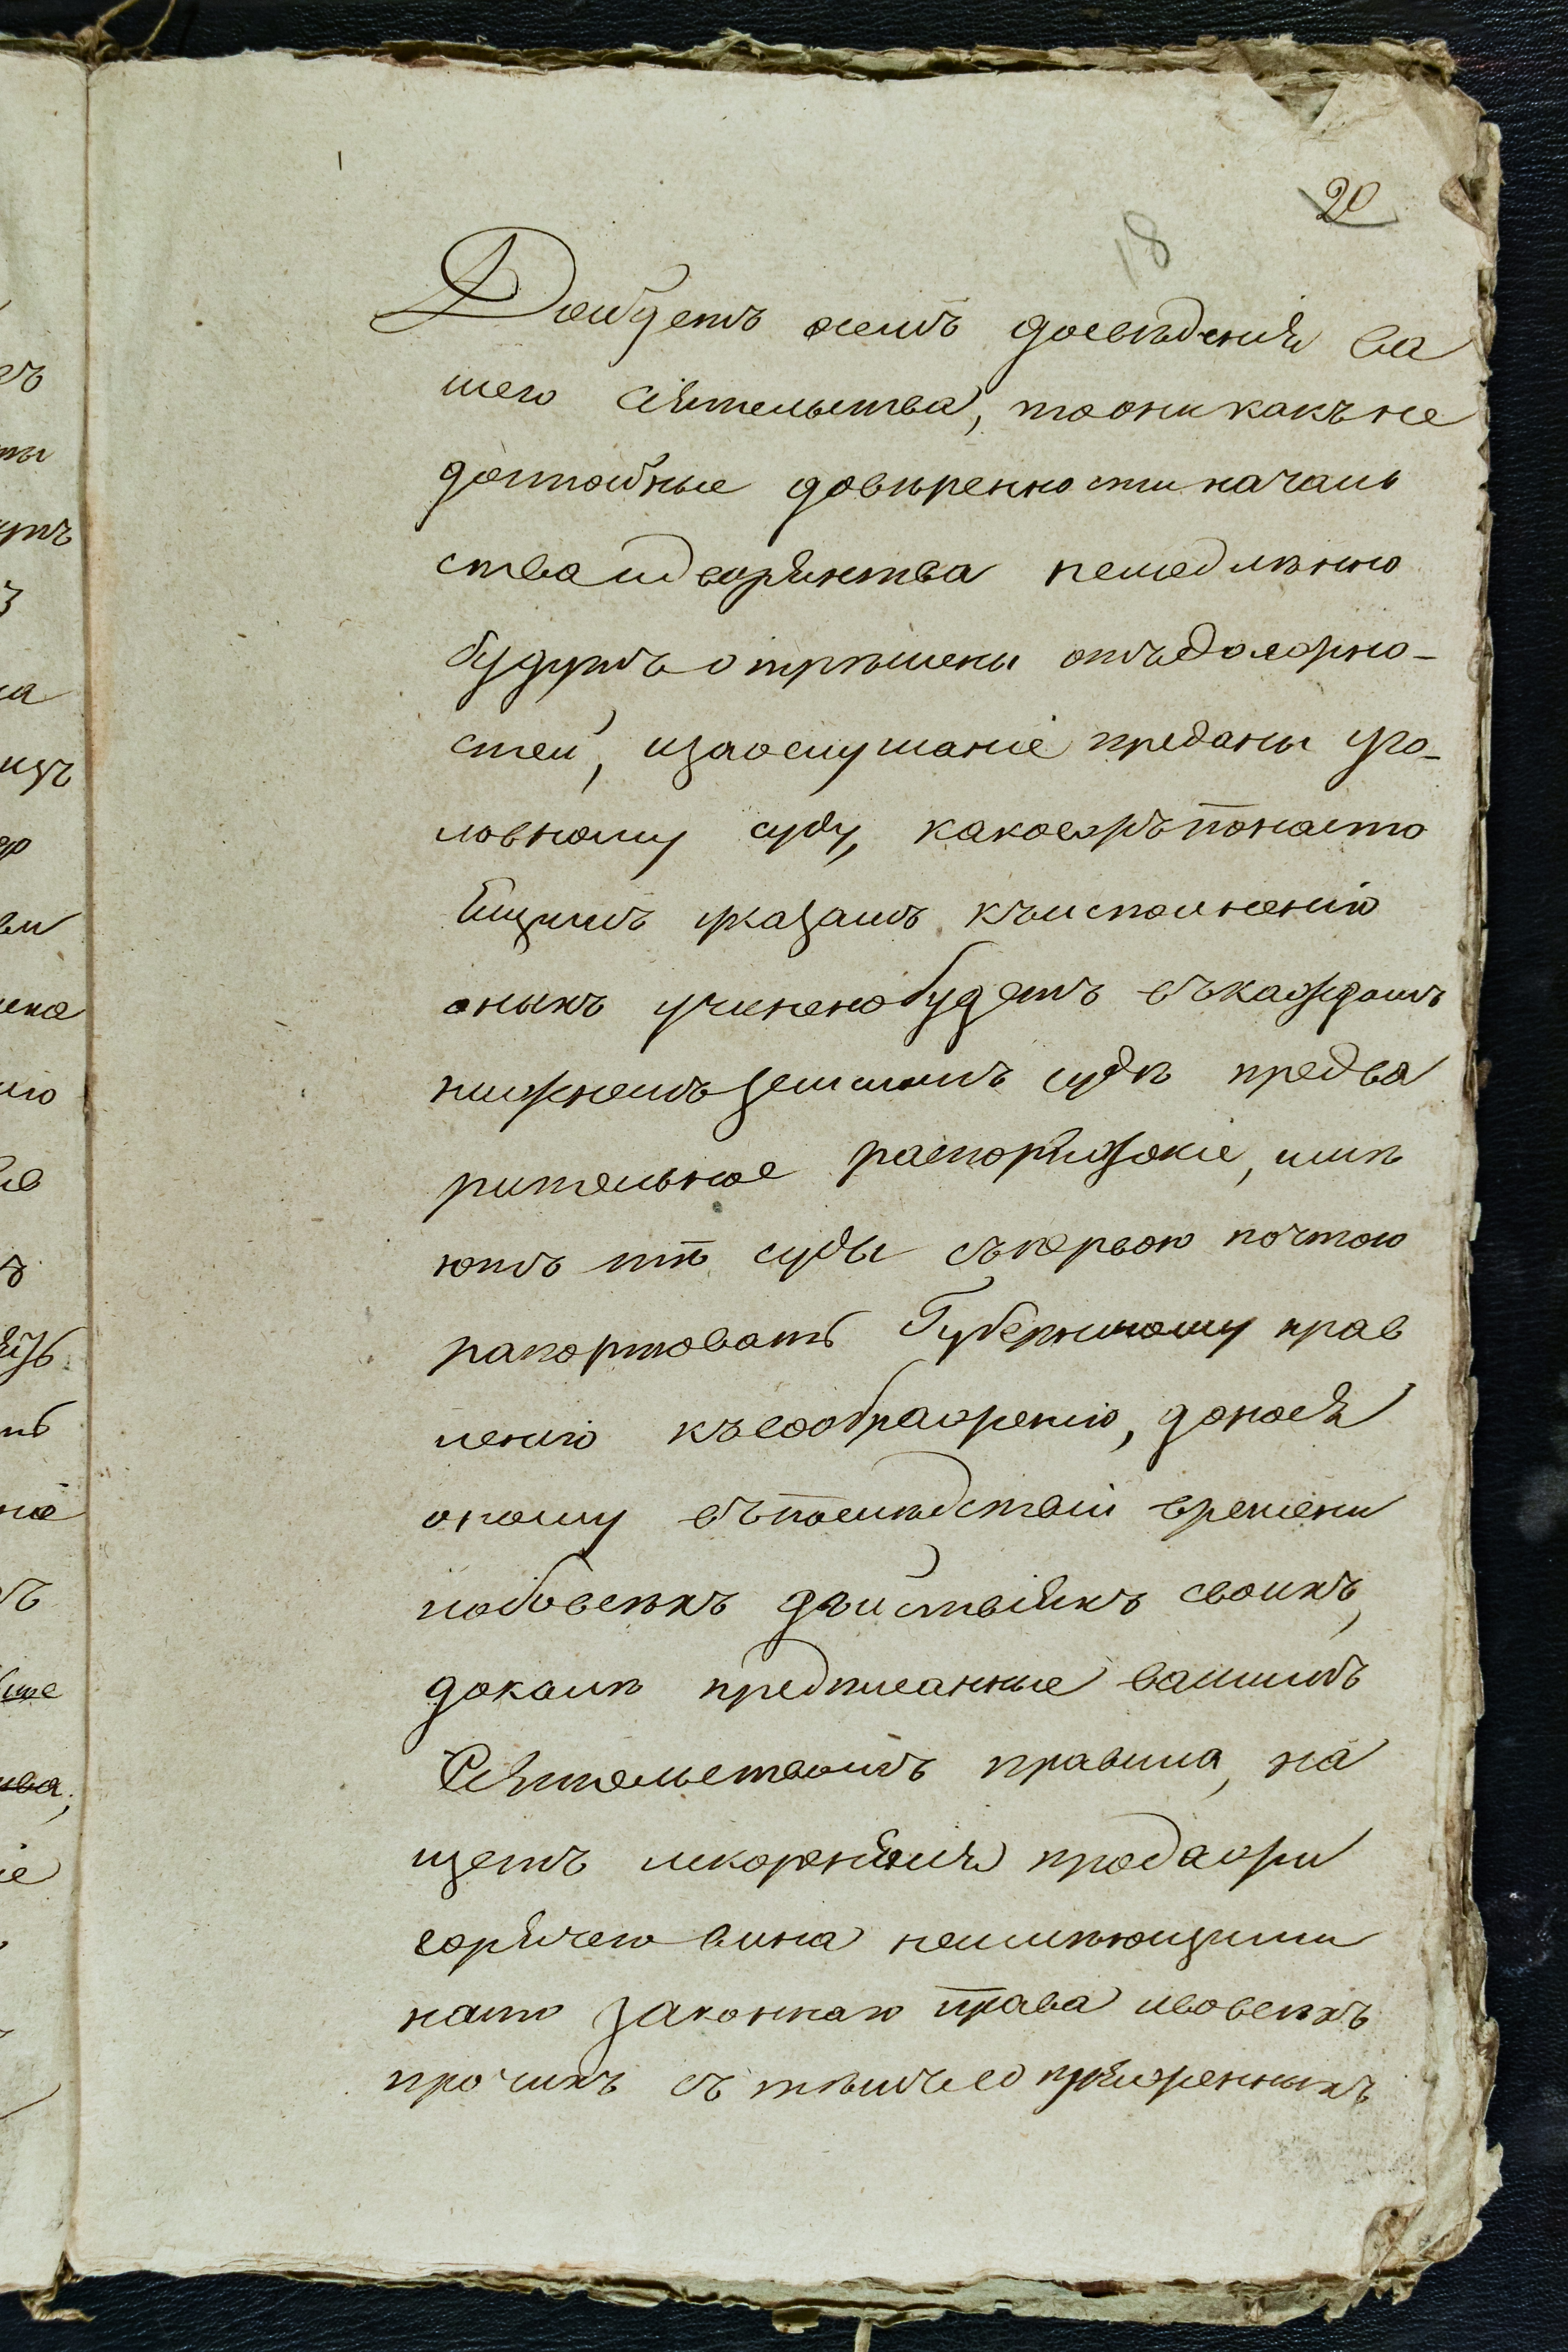 20
18
Дойдетъ осемъ досвѣденія ва
шего Сіятельства, то они какъ не
достойные довѣренности началь
ства и дворянства немедлѣнно
будутъ отрѣшены отъ должно-
стей, и за ослушаніе преданы уго-
ловному суду, какоежъ по насто
ящимъ указамъ къ исполненію
оныхъ учинено будетъ въ каждомъ
нижнемъ земскомъ судѣ предва
рительное распоряженіе, имѣ
ютъ тѣ суды съ первою почтою
рапортовать Губернскому прав
ленію къ соображенію, донося
оному въ послѣдствіи времени
и обо всехъ дѣйствіяхъ своихъ,
доколѣ предписанные вашимъ
Сіятельствомъ правила, на
щетъ искорененія продажи
горячего вина неимѣющими
на то законнаго права и во всехъ
прочихъ съ тѣмъ сопряженныхъ